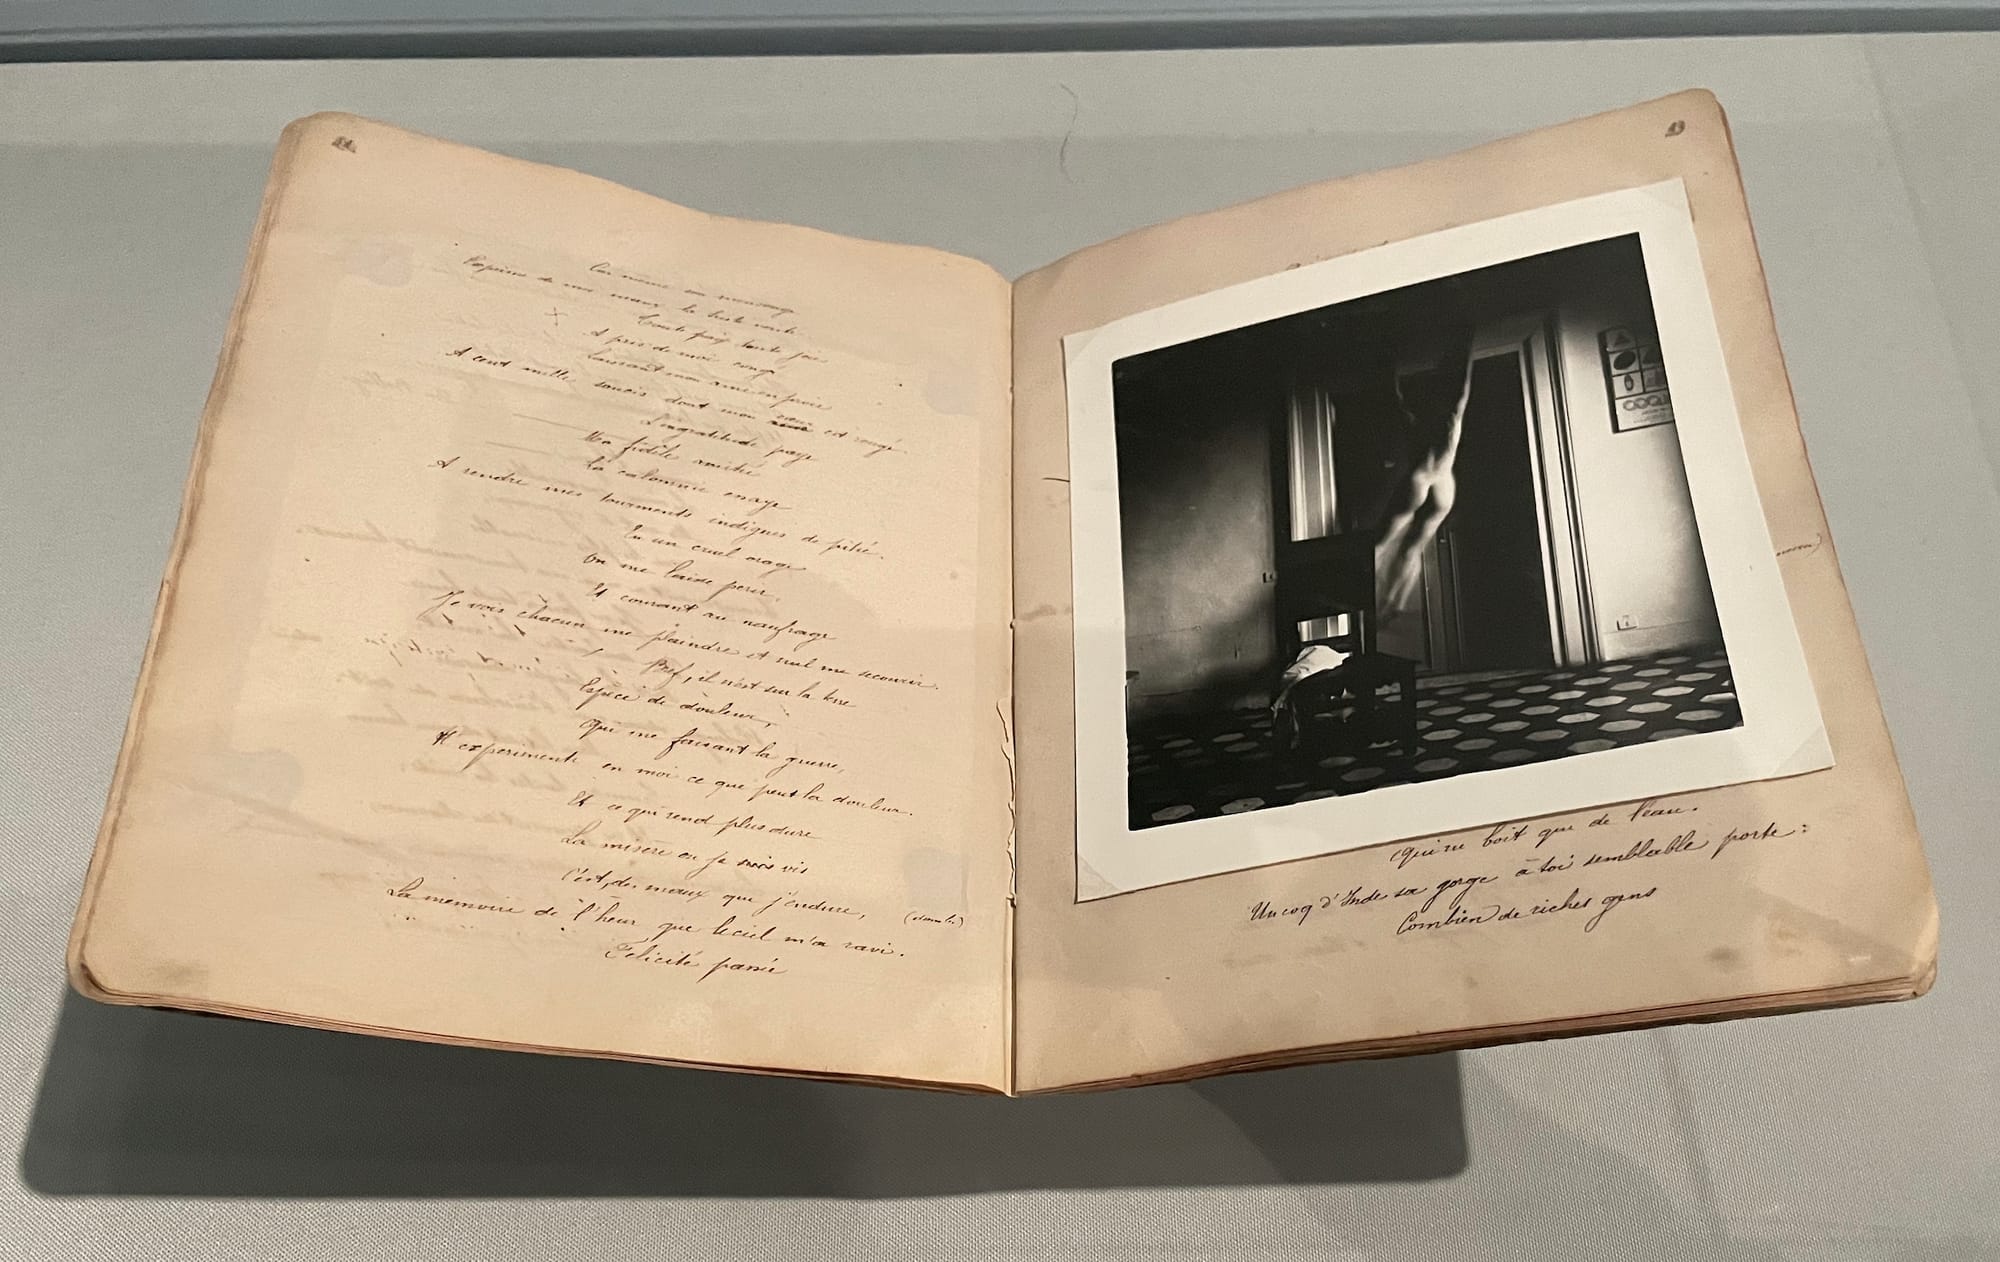 Toute paix toute joie
A pris de moi congé
Laissant mon ame en proie
A cent mille soucis dont mon cœur est rongé.
L'ingratitude paye
Ma fidèle amitié
La calomnie essaye
A rendre mes tourments indignes de pitié.
En un cruel orage
On me laisse perir,
Et courant au naufrage
Je vois chacun me plaindre et nul me secourir.
Bref, il n'est sur la terre
Espèce de douleur,
Qui me faisant la guerre,
N'experimente en moi ce que peut la douleur.
Et ce qui rend plus dure
La misere ou je vis
C'est, des maux que j'endure,
La memoire de l'heur que le ciel m'a ravi.
Felicité passée
43
COQU
qui ne boit que de l'eau.
Un coq d'Inde sa gorge à toi semblable porte:
Combien de riches gens